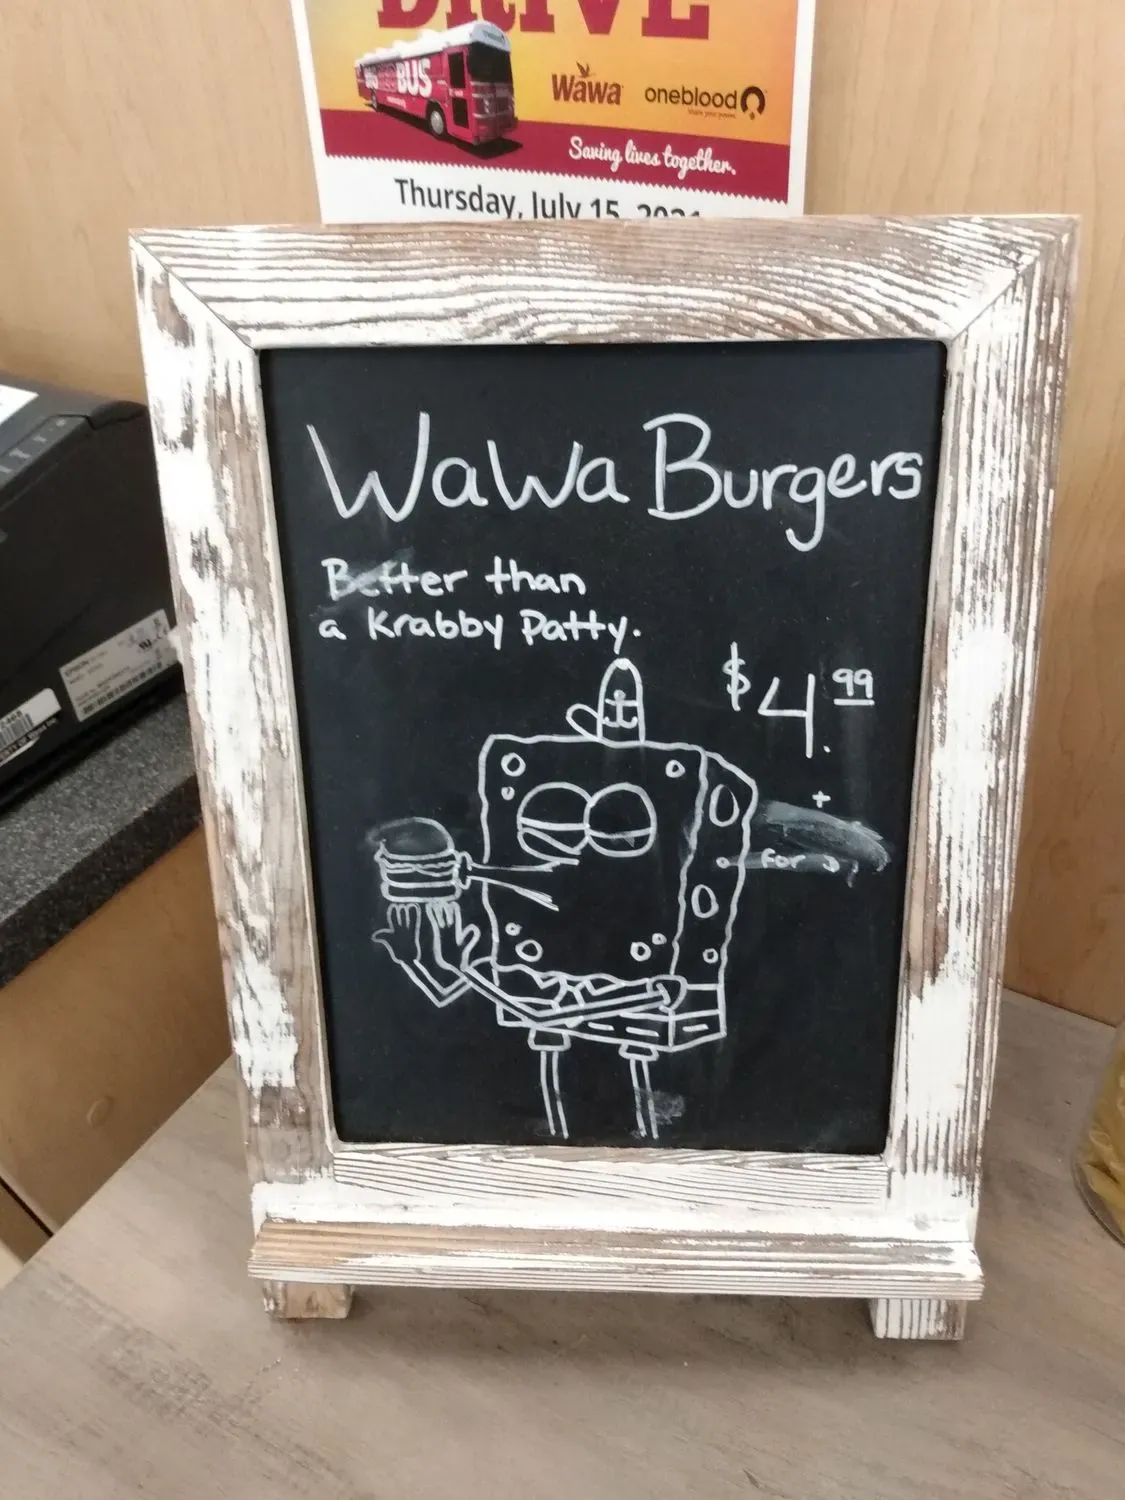 DRIVE
BUS
Wawa
oneblood
Saving lives together.
Thursday, July 15, 2021
WaWa Burgers
Better than
a Krabby Patty.
$4.99
+
for
EPSON